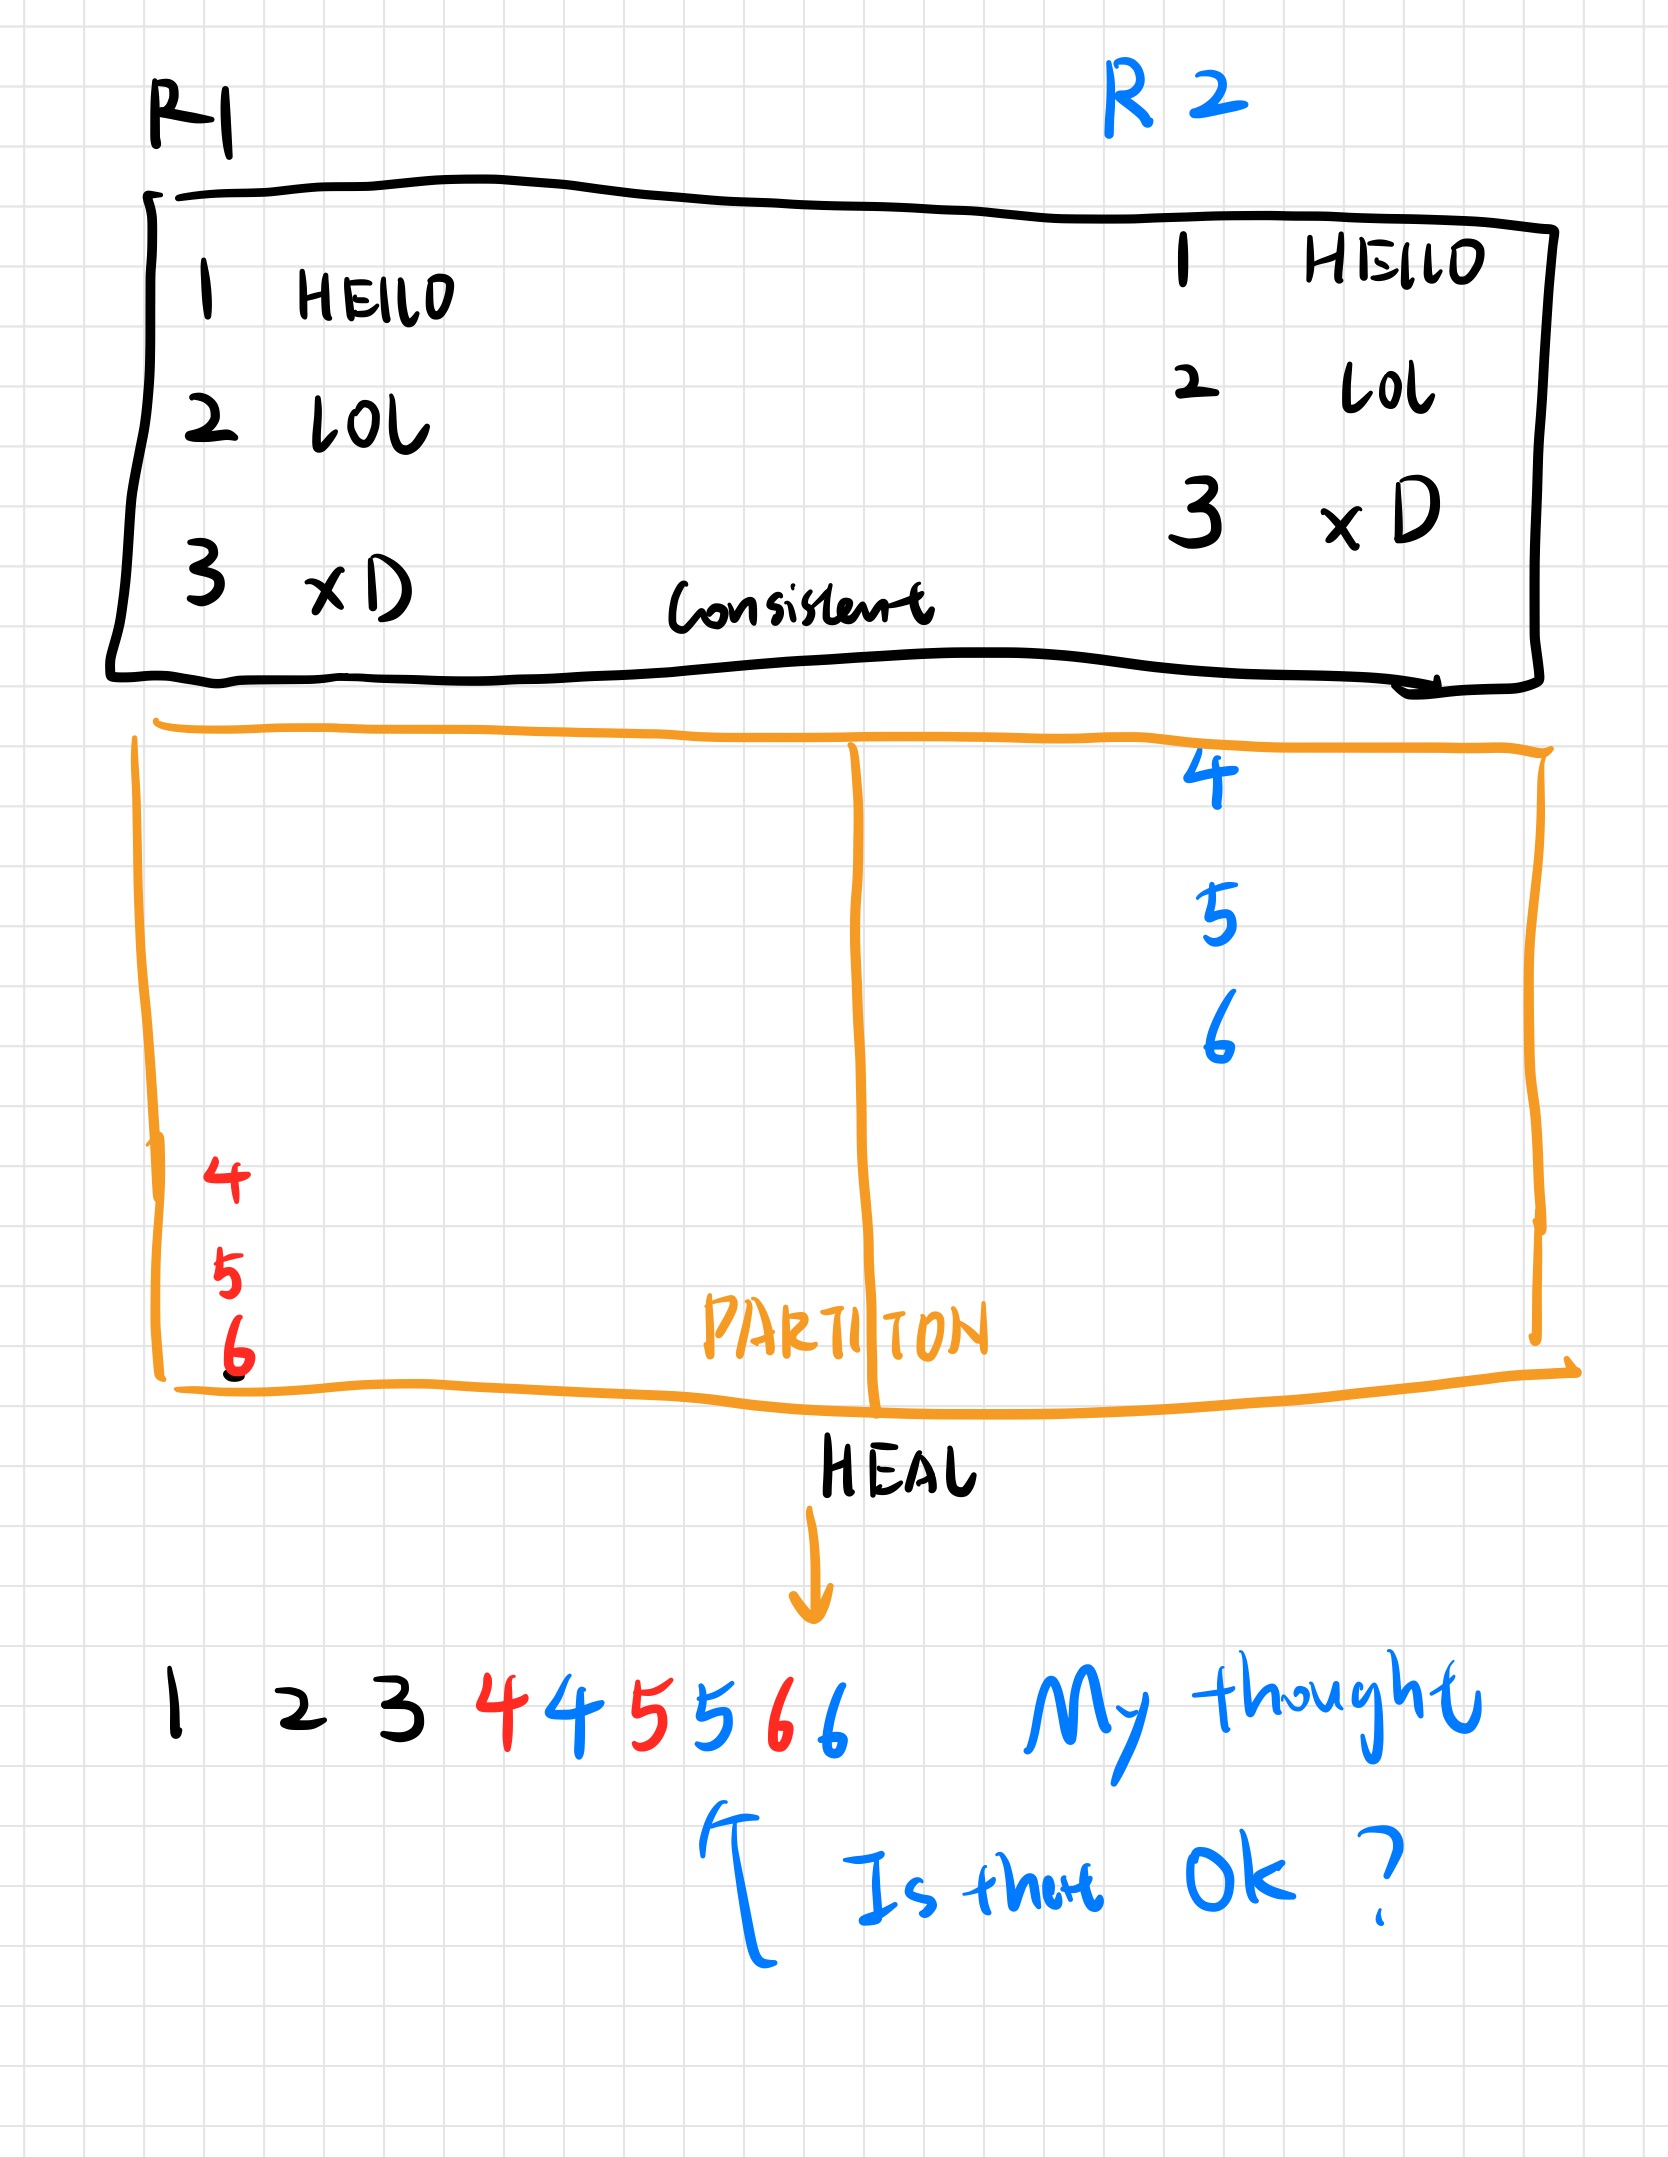 R1 R2
1 HELLO 1 HELLO
2 LOL 2 LOL
3 xD 3 xD
Consistent
4
5
6
4
5
6
PARTITON
HEAL
1 2 3 4 4 5 5 6 6 My thought
Is that Ok ?